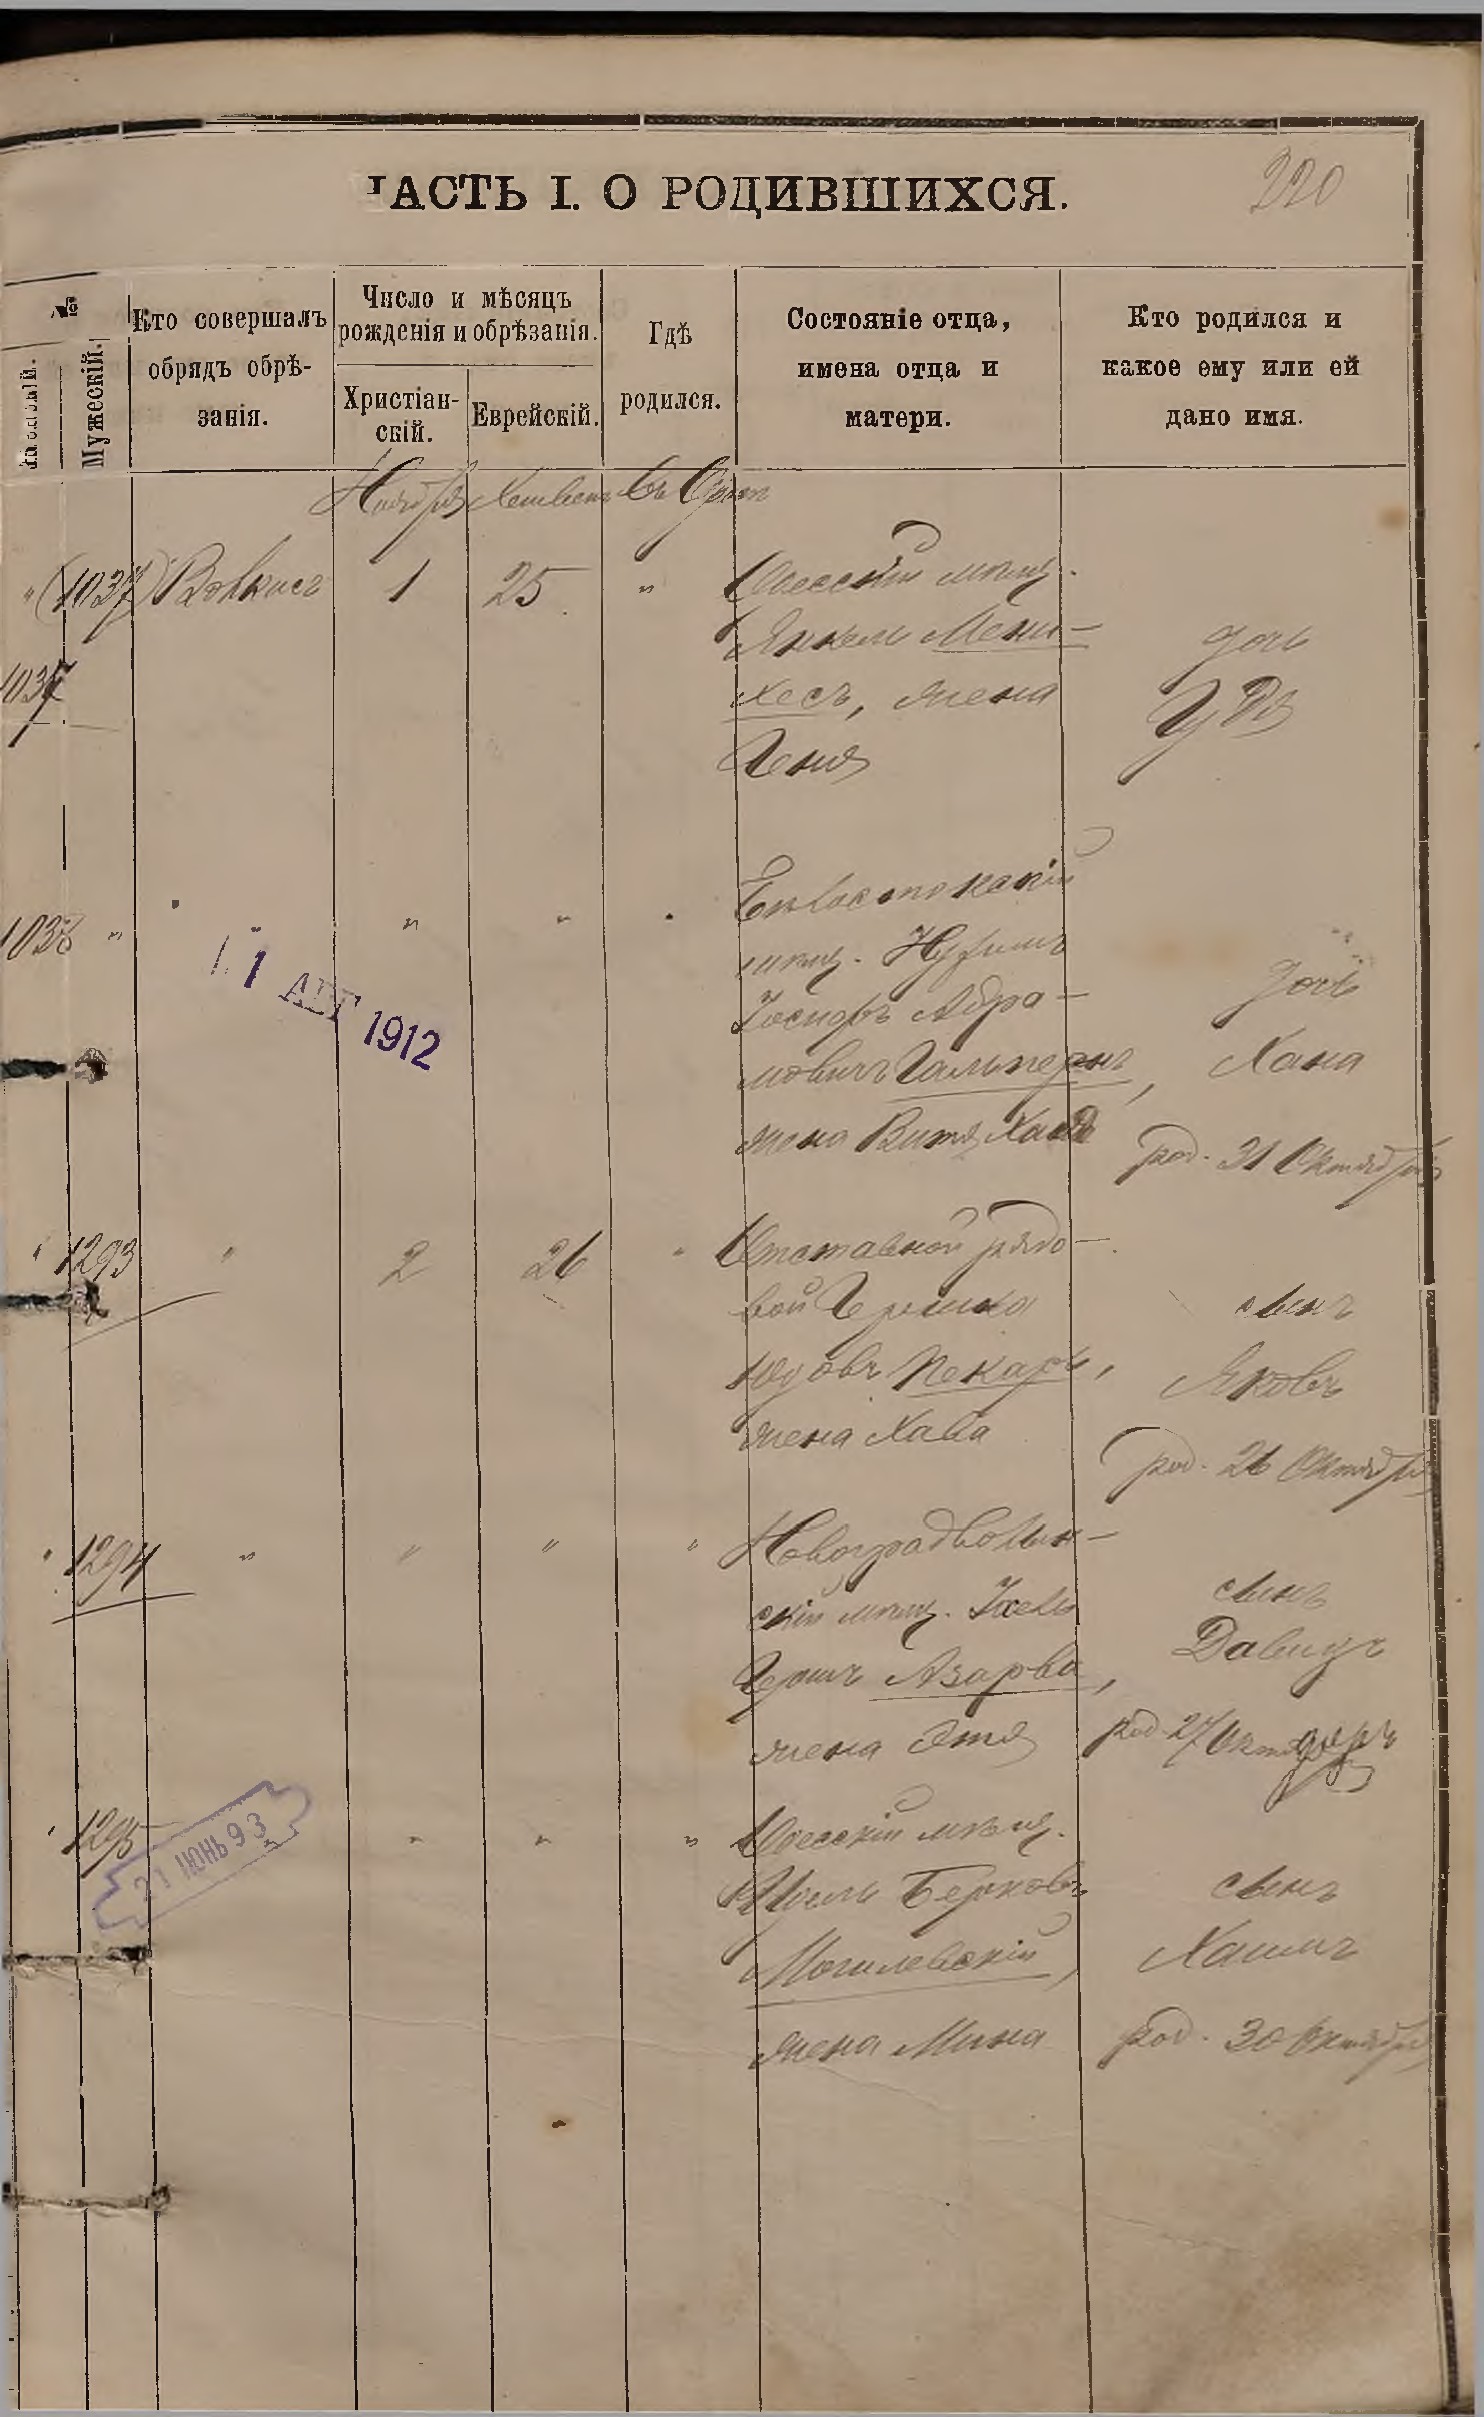 ЧАСТЬ I. О РОДИВШИХСЯ.
220
№
Мужескій.
Кто совершалъ
обрядъ обрѣ-
занія.
Число и мѣсяцъ
рожденія и обрѣзанія.
Христіан-
скій.
Еврейскій.
Гдѣ
родился.
Состояніе отца,
имена отца и
матери.
Кто родился и
какое ему или ей
дано имя.
Ноября Хешвенъ Въ Одессѣ
" (1037) 1 25 " Одесскій мѣщ.
Янкель Мени-
хесъ, жена
Геня
1037
дочь
Удя
1038 " " " "
Бѣлостокскій
мѣщ. Нухимъ
Іосифъ Абра-
мовичъ Гальпернъ,
жена Витя Хая
дочь
Хана
род. 31 Октября
11 АВГ 1912
" 1293 " 2 26 " Отставной рядо-
вой Гершко
Юдовъ Пекарь,
жена Хава
сынъ
Яковъ
род. 26 Октября
" 1294 " " " " Новоградволын-
скій мѣщ. Ихель
Гершъ Азарва,
жена Этя
сынъ
Давидъ
род. 27 Октября
" 1295 " " " Одесскій мѣщ.
Сруль Берковъ
Могилевскій,
жена Мина
сынъ
Хаимъ
род. 30 Октября
21 ІЮНЬ 93